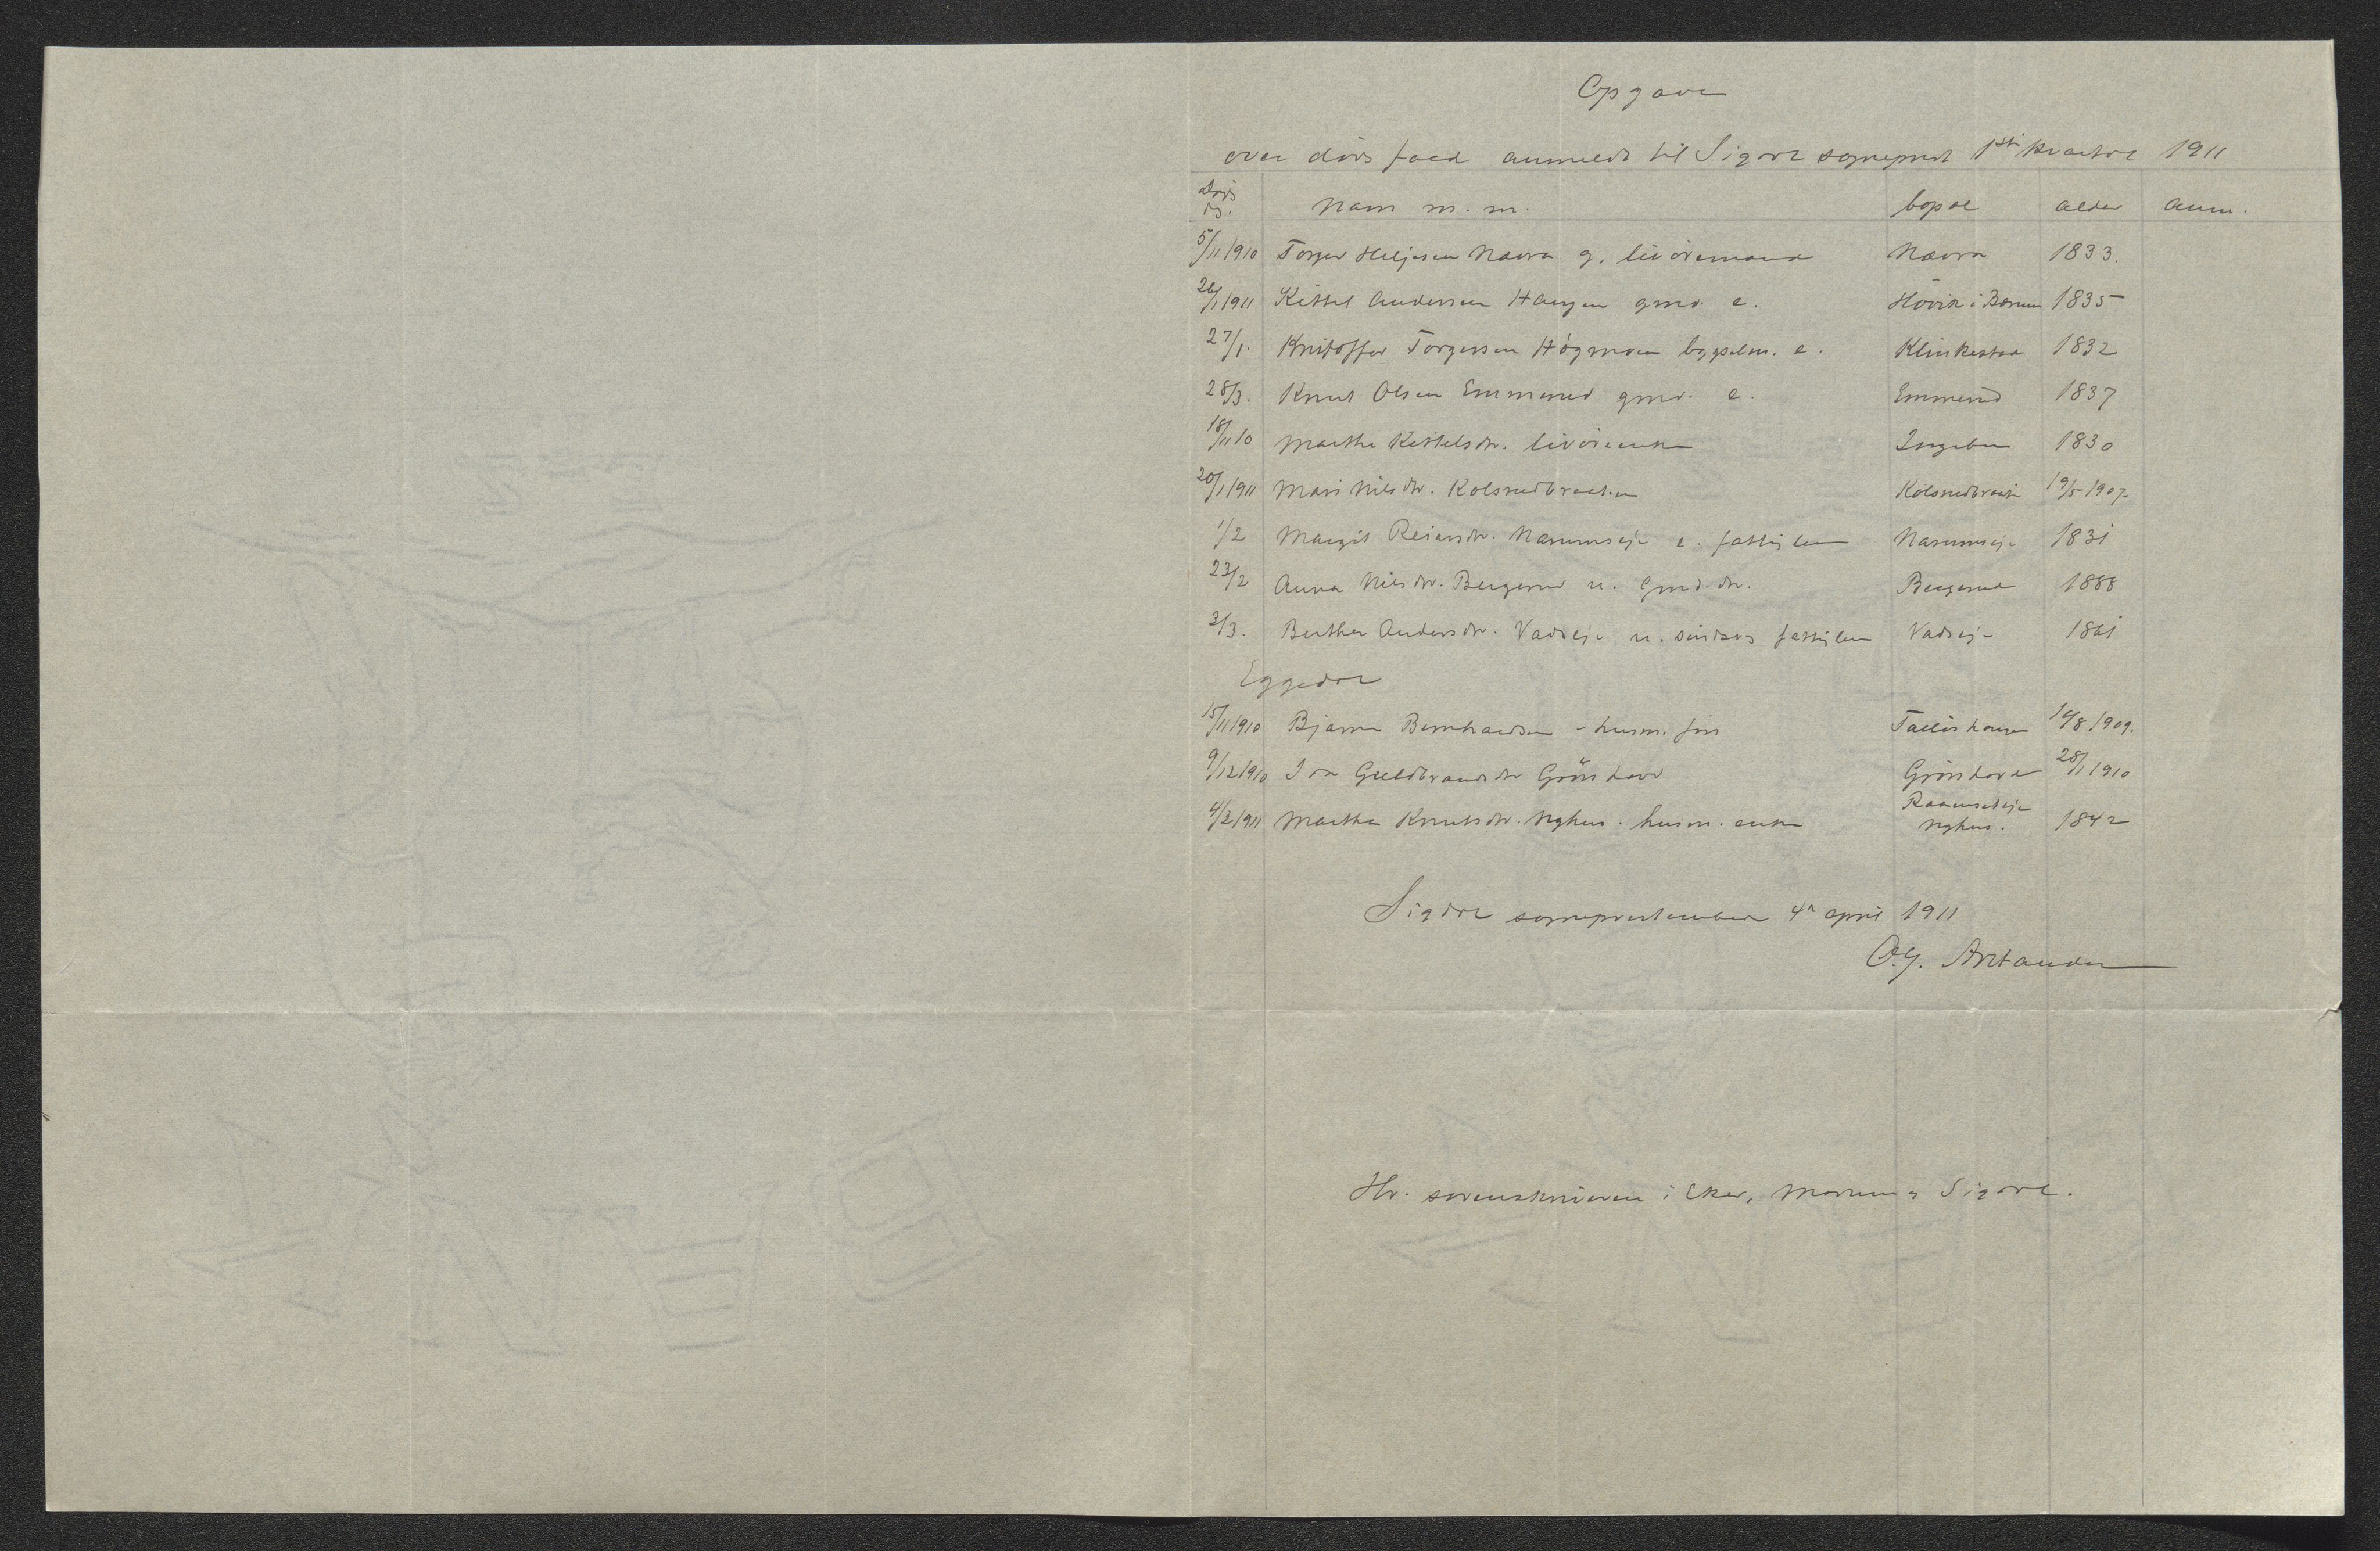 Opgave
over dødsfald anmeldt til Sigdal sogneprest 1ste kvartal 1911
Døds
d. Navn m. m. bopæl alder anm.
5/11 1910 Torger Heljesen Nævra g. livøremand Nævra 1833.
26/1 1911 Kittel Anderssen Haugen gmd. e. Høvik i Bærum 1835
27/1. Kristoffer Torgersen Høgmoen bygselm. e. Klinkestad 1832
28/3. Knut Olsen Emmerud gmd. e. Emmerud 1837
18/11 10 Marthe Kittelsdtr. livøreenke 1830
20/1 1911 Mari Nilsdtr. Kolsrudbraaten Kolsrudbraaten 19/5 1907.
1/2 Margit Reiersdtr. Narumseje e. fattiglem Narumseje 1831
23/2 Anna Nilsdtr. Bergerud u. gmd. dtr. Bergerud 1888
3/3. Berthe Andersdtr. Vadseje u. sindssvg fattiglem Vadseje 1861
Eggedal
15/11 1910 Bjarne Bernhardsen - husm. søn 14/8 1909.
9/12 1910 Ida Guldbrandsdtr Grønhovd Grønhovd 28/1 1910
4/2 1911 Marthe Knutsdtr. Nyhus. husm. enke
Nyhus. 1842
Sigdal sogneprestembede 4de april 1911
Hr. sorenskriveren i Eker, Modum og Sigdal.